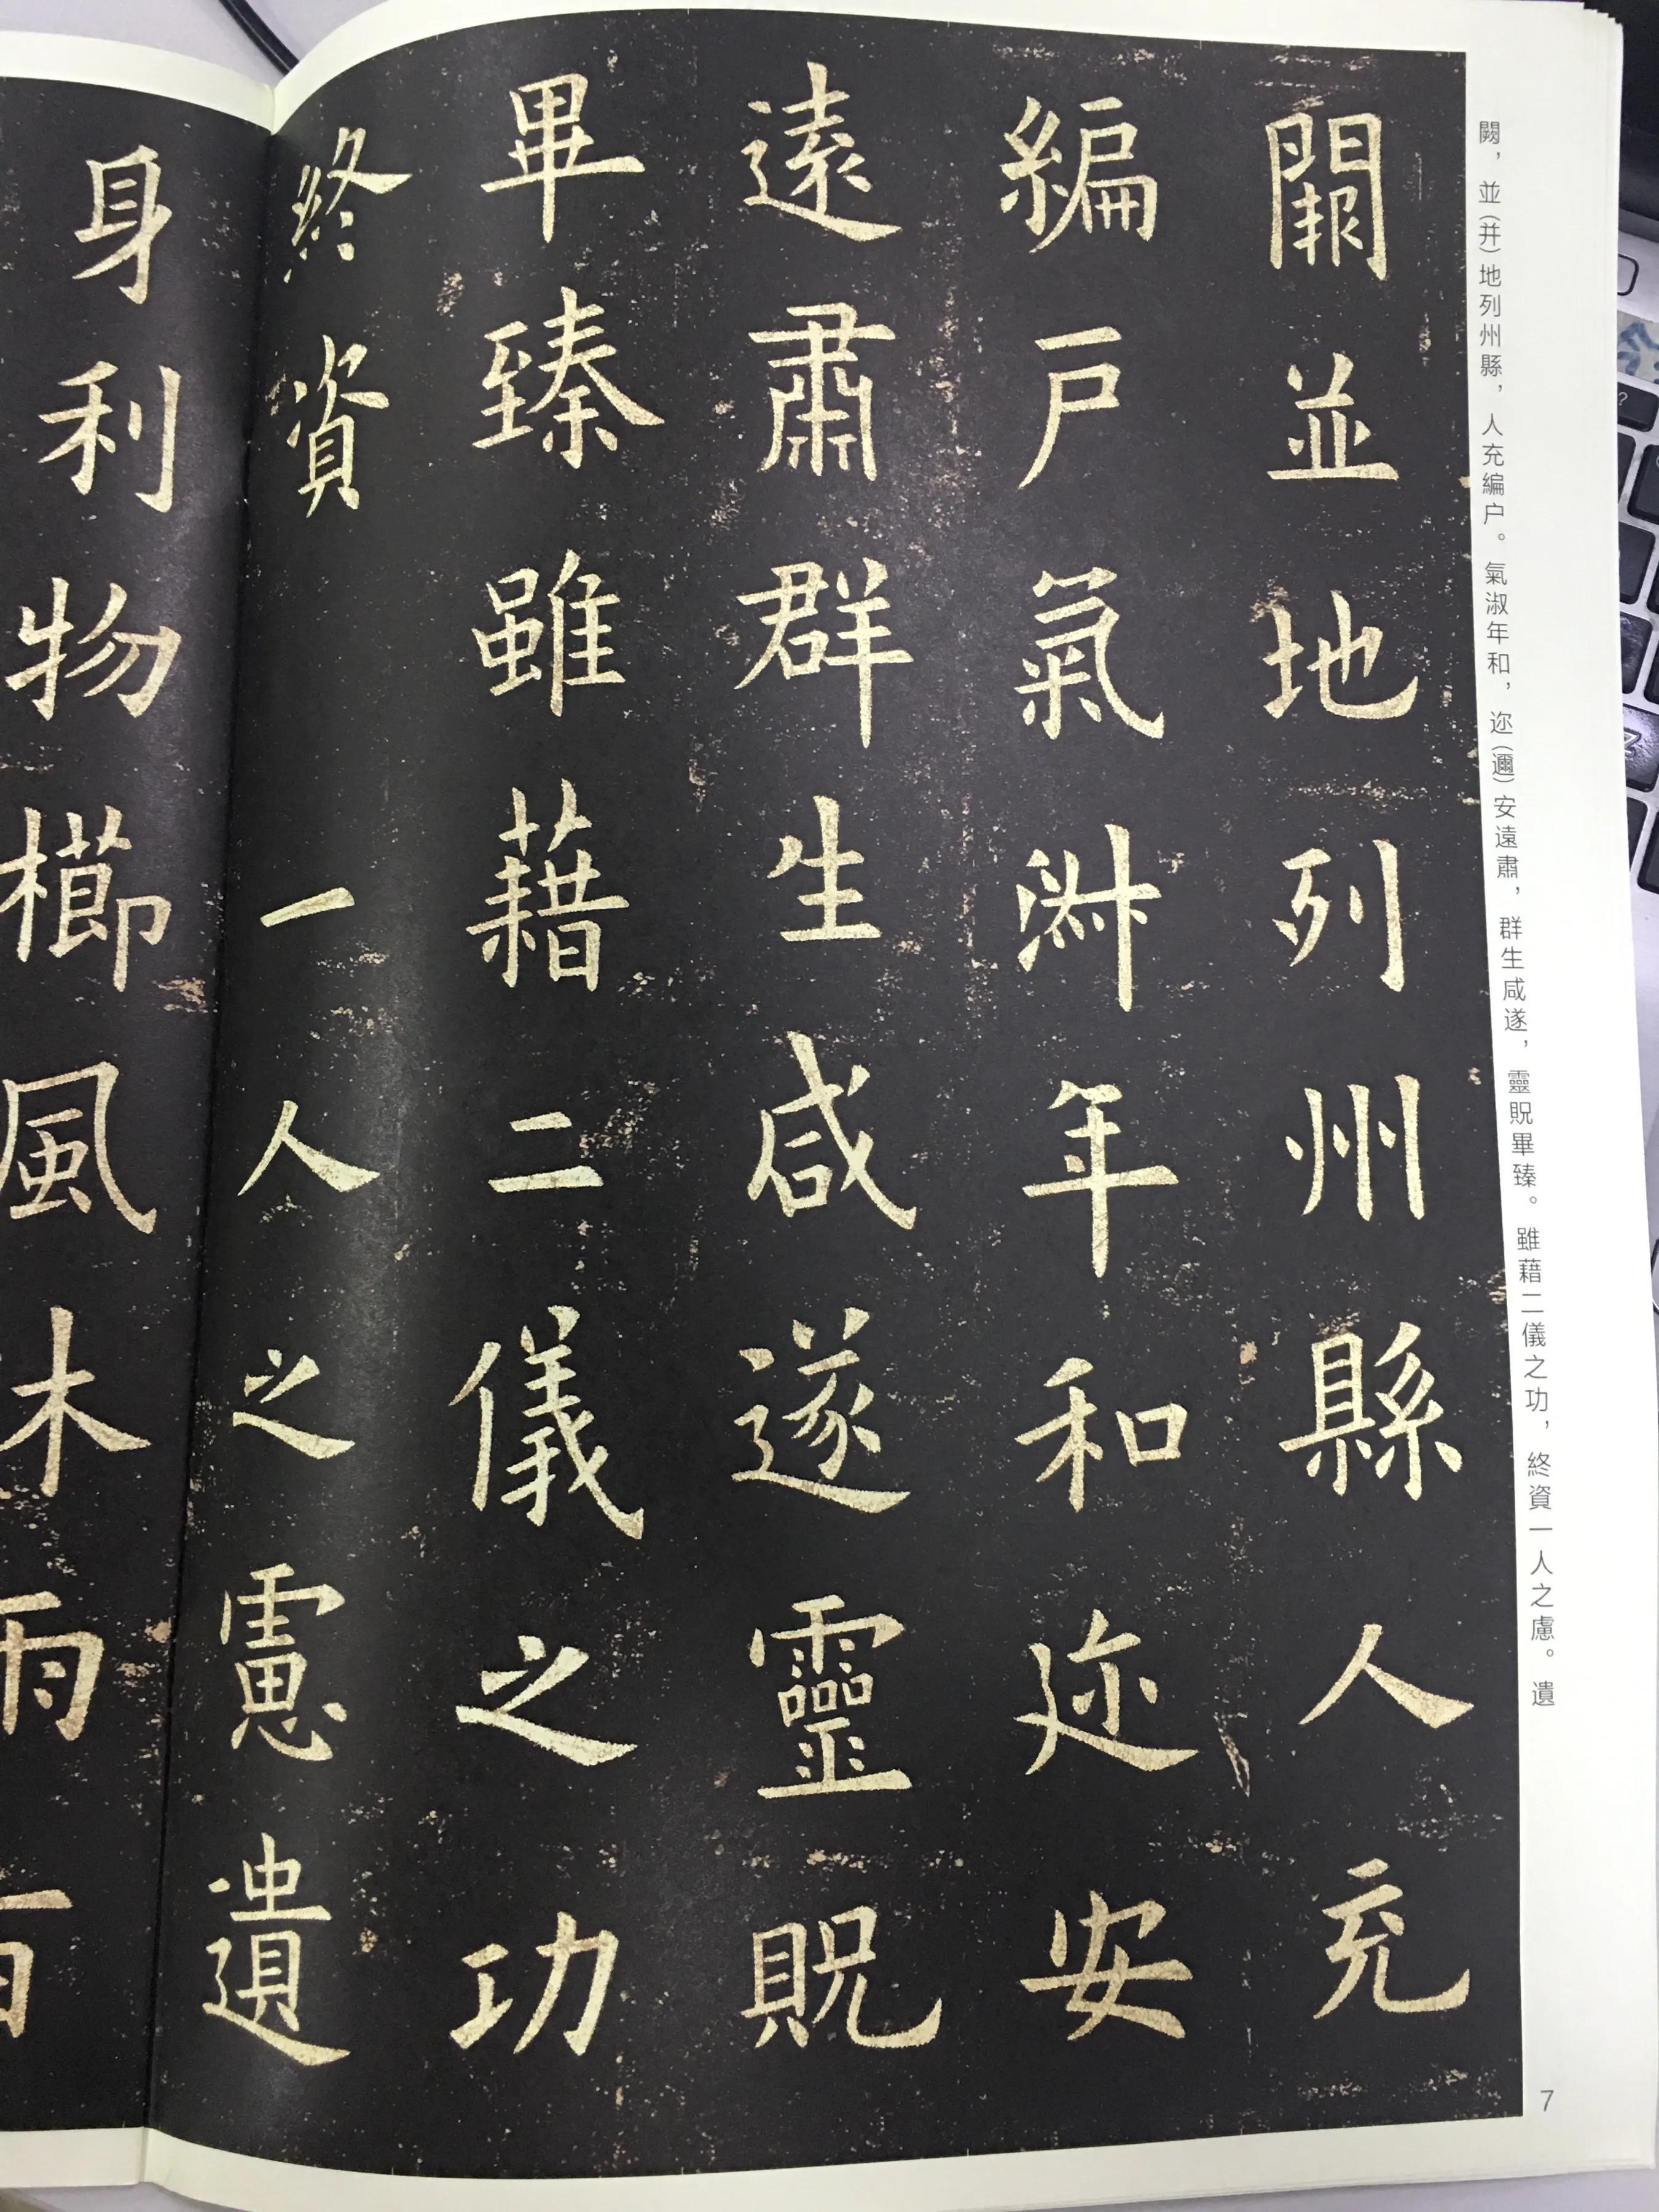 闕並地列州縣人充
編戶氣淑年和迩安
遠肅群生咸遂靈貺
畢臻雖藉二儀之功
終資一人之慮遺
身利物櫛風木雨百
闕，並(并)地列州縣，人充編户。氣淑年和，迩(邇)安遠肅，群生咸遂，靈貺畢臻。雖藉二儀之功，終資一人之慮。遺
7